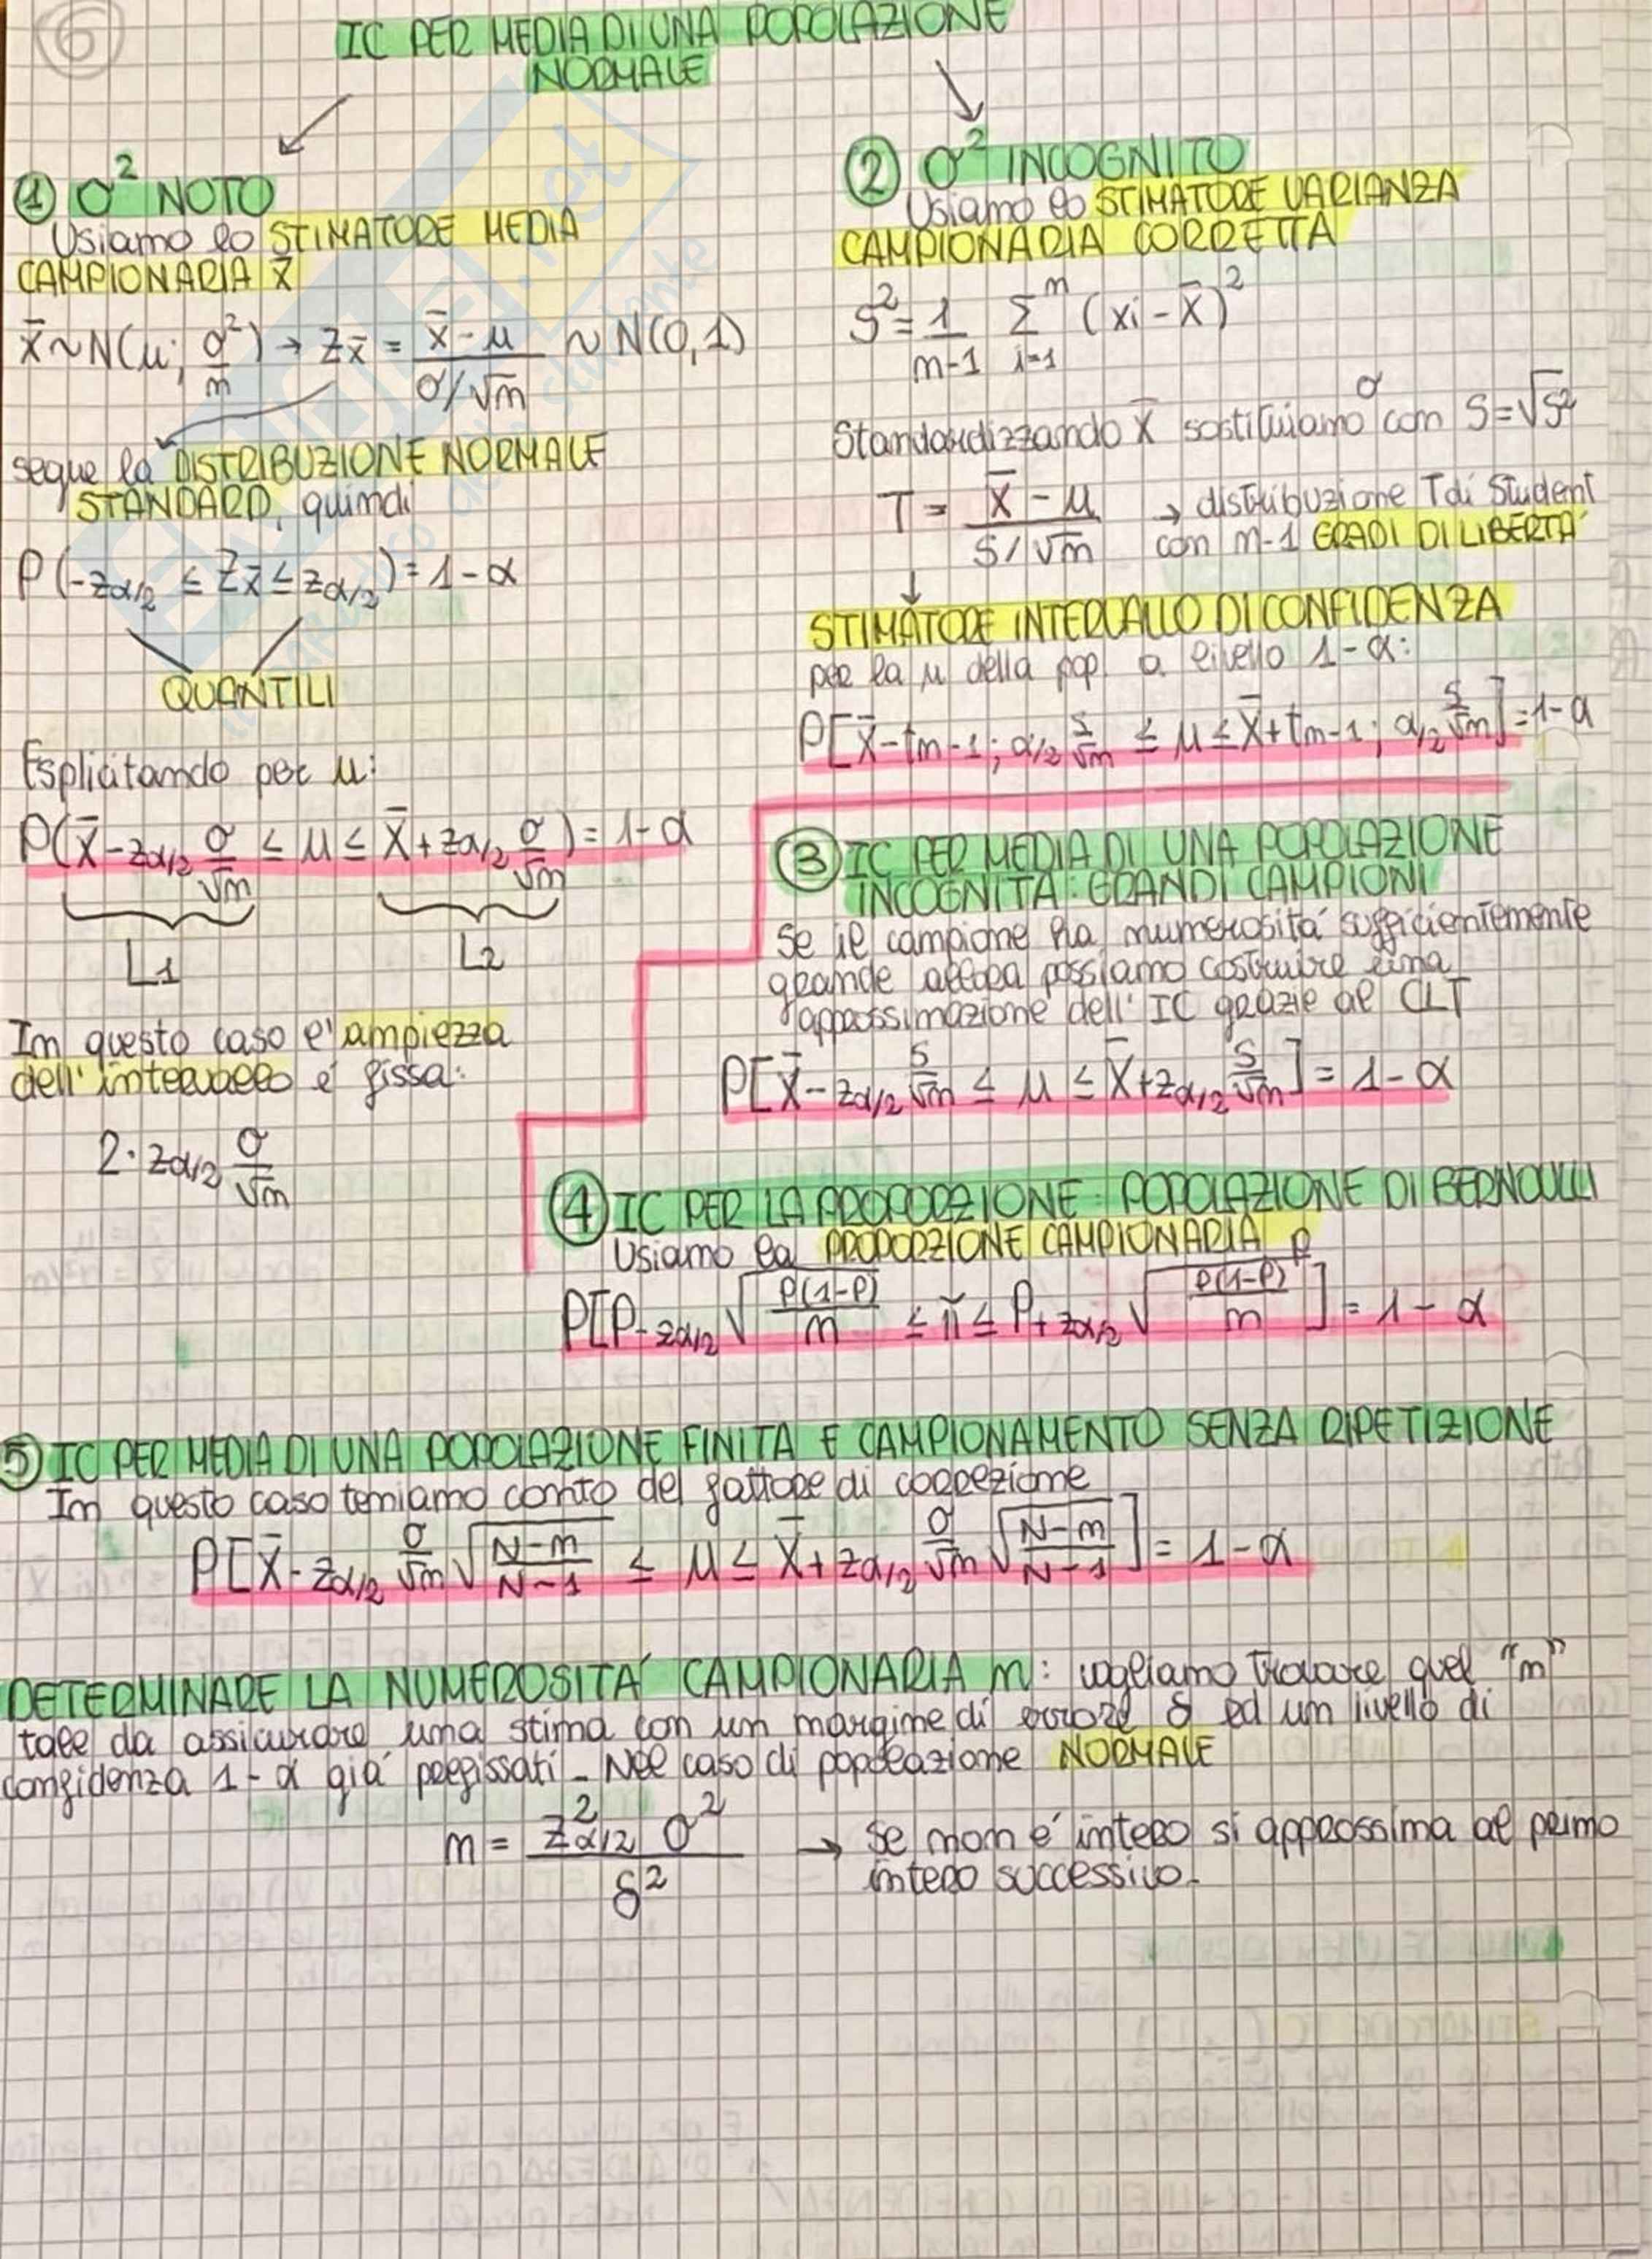 6
IC PER MEDIA DI UNA POPOLAZIONE
NORMALE
① σ² NOTO
Usiamo lo STIMATORE MEDIA
CAMPIONARIA X̄
X̄ ~ N(μ; σ²/n) → Z_X̄ = (X̄ - μ)/(σ/√n) ~ N(0,1)
segue la DISTRIBUZIONE NORMALE
STANDARD, quindi
P(-z_α/2 ≤ Z_X̄ ≤ z_α/2) = 1-α
QUANTILI
Esplicitando per μ:
P(X̄ - z_α/2 σ/√n ≤ μ ≤ X̄ + z_α/2 σ/√n) = 1-α
L1 L2
In questo caso l'ampiezza
dell'intervallo é fissa:
2· z_α/2 σ/√n
② σ² INCOGNITO
Usiamo lo STIMATORE VARIANZA
CAMPIONARIA CORRETTA
S² = 1/(n-1) Σ_{i=1}^n (xi - X̄)²
Standardizzando X̄ sostituiamo σ con S = √S²
T = (X̄ - μ)/(S/√n) → distribuzione T di Student
con n-1 GRADI DI LIBERTA'
↓
STIMATORE INTERVALLO DI CONFIDENZA
per la μ della pop. a livello 1-α:
P[X̄ - t_n-1; α/2 S/√n ≤ μ ≤ X̄ + t_n-1; α/2 S/√n] = 1-α
③ IC PER MEDIA DI UNA POPOLAZIONE
INCOGNITA: GRANDI CAMPIONI
Se il campione ha numerositá sufficientemente
grande allora possiamo costruire una
approssimazione dell'IC grazie al CLT
P[X̄ - z_α/2 S/√n ≤ μ ≤ X̄ + z_α/2 S/√n] = 1-α
④ IC PER LA PROPORZIONE: POPOLAZIONE DI BERNOULLI
Usiamo la PROPORZIONE CAMPIONARIA P
P[P - z_α/2 √(P(1-P)/n) ≤ π ≤ P + z_α/2 √(P(1-P)/n)] = 1-α
⑤ IC PER MEDIA DI UNA POPOLAZIONE FINITA E CAMPIONAMENTO SENZA RIPETIZIONE
In questo caso teniamo conto del fattore di correzione
P[X̄ - z_α/2 σ/√n √((N-n)/(N-1)) ≤ μ ≤ X̄ + z_α/2 σ/√n √((N-n)/(N-1))] = 1-α
DETERMINARE LA NUMEROSITÁ CAMPIONARIA n: vogliamo trovare quel "n"
tale da assicurare una stima con un margine di errore δ ed un livello di
confidenza 1-α giá prefissati. Nel caso di popolazione NORMALE
n = z²_α/2 σ² / δ² → se non é intero si approssima al primo
intero successivo.